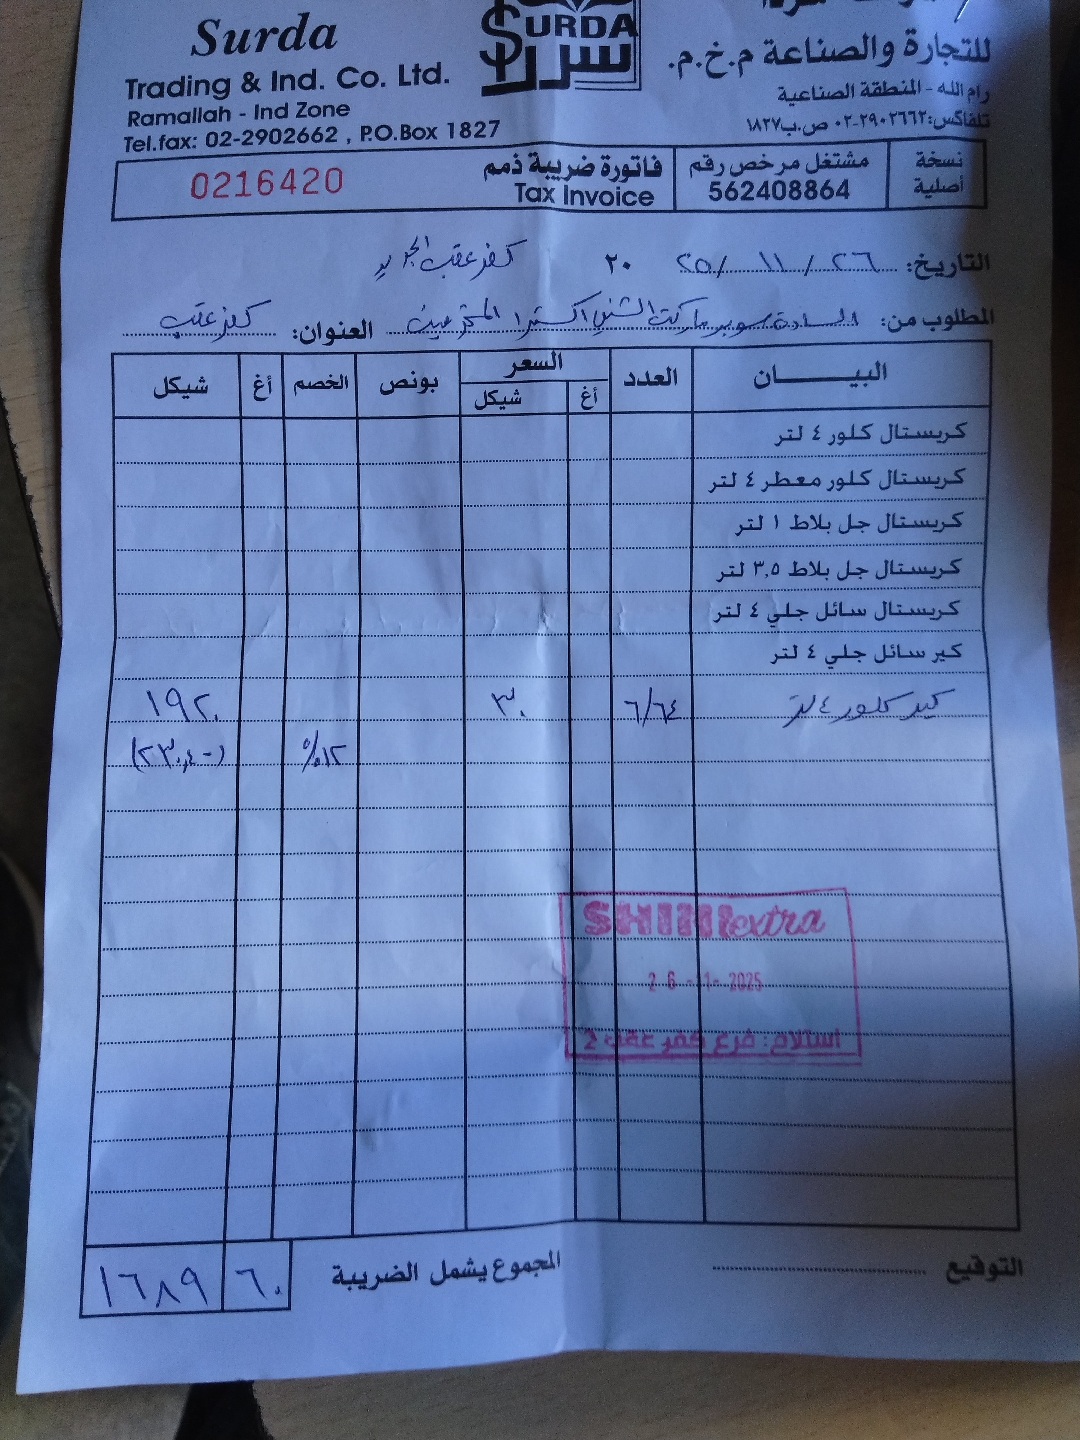 Surda
SURDA
سردا
Trading & Ind. Co. Ltd.
للتجارة والصناعة م.خ.م.
Ramallah - Ind Zone
رام الله - المنطقة الصناعية
Tel.fax: 02-2902662 , P.O.Box 1827
تلفاكس: ٢٩٠٢٦٦٢-٠٢ ص.ب ١٨٢٧
نسخة أصلية
مشتغل مرخص رقم
562408864
فاتورة ضريبة ذمم
Tax Invoice
0216420
التاريخ: ٢٦ / ١١ / ٢٥ ٢٠ كفر عقب الجديد
المطلوب من: السادة سوبر ماركت الشني اكسترا المحترمين العنوان: كفر عقب
البيـــــــان العدد السعر بونص الخصم أغ شيكل
أغ شيكل
كريستال كلور ٤ لتر
كريستال كلور معطر ٤ لتر
كريستال جل بلاط ١ لتر
كريستال جل بلاط ٣,٥ لتر
كريستال سائل جلي ٤ لتر
كير سائل جلي ٤ لتر
كير كلور ٤ لتر ٦/٦٤ ٣٠ ١٩٢٠
١٢٪ (٢٣٠,٤-)
SHINI extra
26 -11- 2025
استلام: فرع كفر عقب 2
التوقيع
المجموع يشمل الضريبة ٦٠ ١٦٨٩